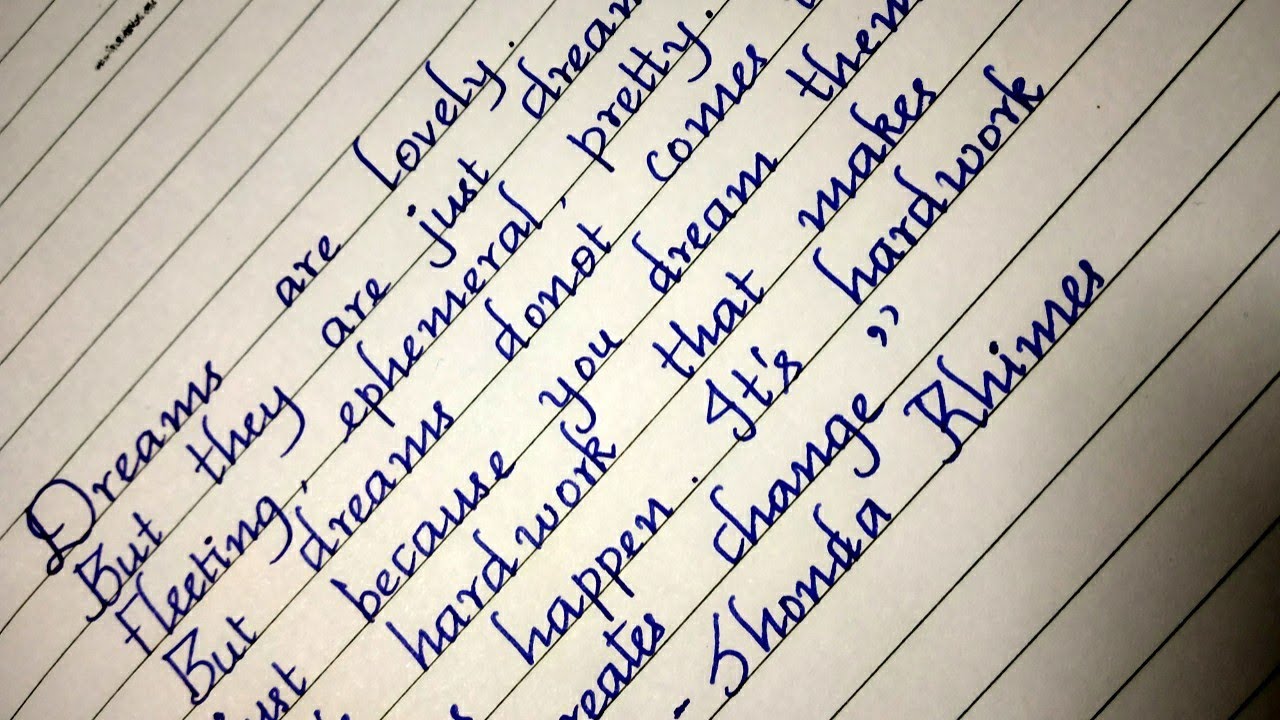 Dreams are lovely.
But they are just dream
Fleeting, ephemeral, pretty.
But dreams donot comes
just because you dream them
hardwork that makes
happen. It's hardwork
reates change"
- Shonda Rhimes